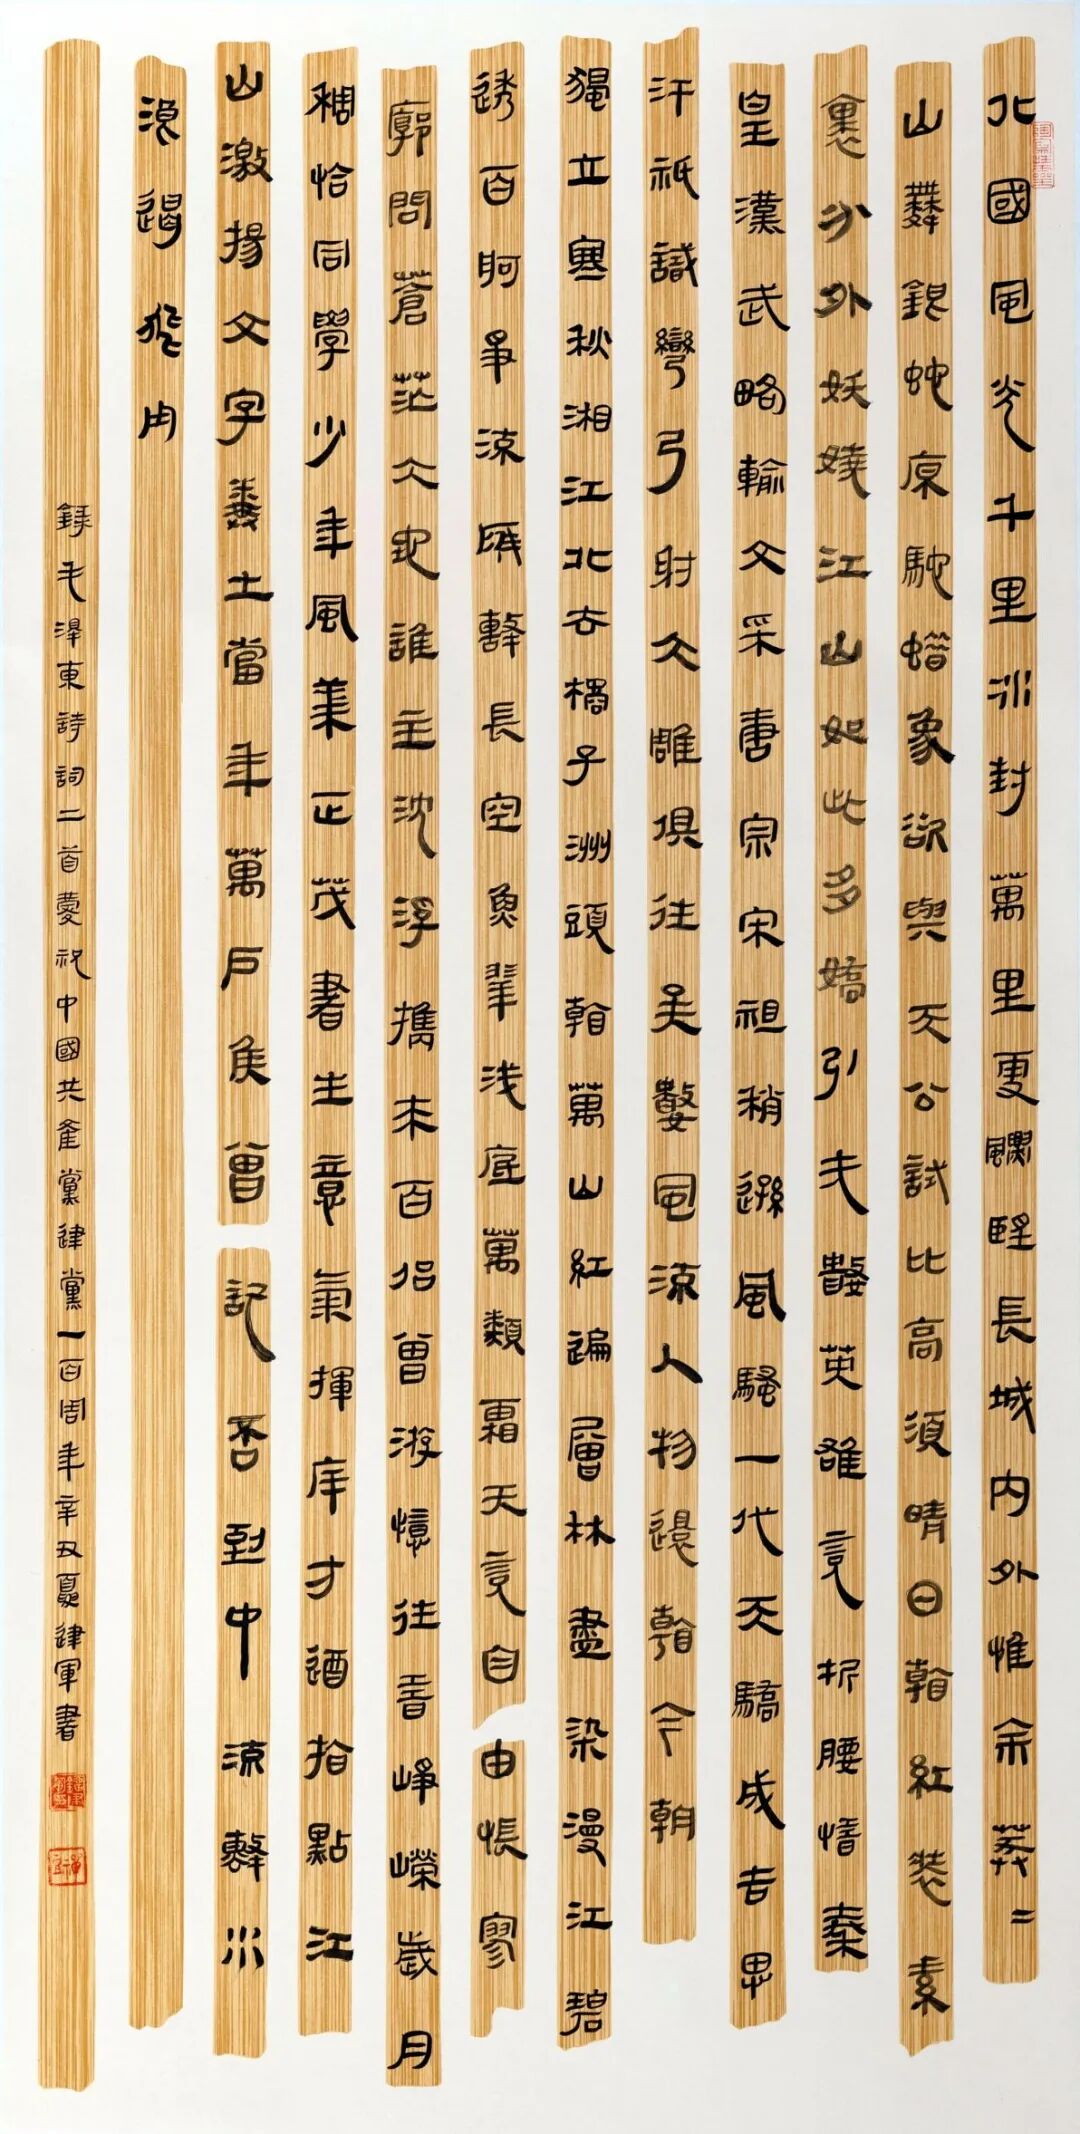 北國風光千里冰封萬里雪飄望長城內外惟余莽二
山舞銀蛇原馳蠟象欲與天公試比高須晴日看紅裝素
裹分外妖嬈江山如此多嬌引无數英雄竟折腰惜秦
皇漢武略輸文采唐宗宋祖稍遜風騷一代天驕成吉思
汗祇識彎弓射大雕俱往矣數風流人物還看今朝
獨立寒秋湘江北去橘子洲頭看萬山紅遍層林盡染漫江碧
透百舸爭流鷹擊長空魚翔淺底萬類霜天竟自由悵寥
廓問蒼茫大地誰主沈浮攜來百侶曾游憶往昔崢嶸歲月
稠恰同學少年風華正茂書生意氣揮斥方遒指點江
山激揚文字糞土當年萬戶侯曾記否到中流擊水
浪遏飛舟
錄毛澤東詩詞二首慶祝中國共產黨建黨一百周年辛丑夏建軍書